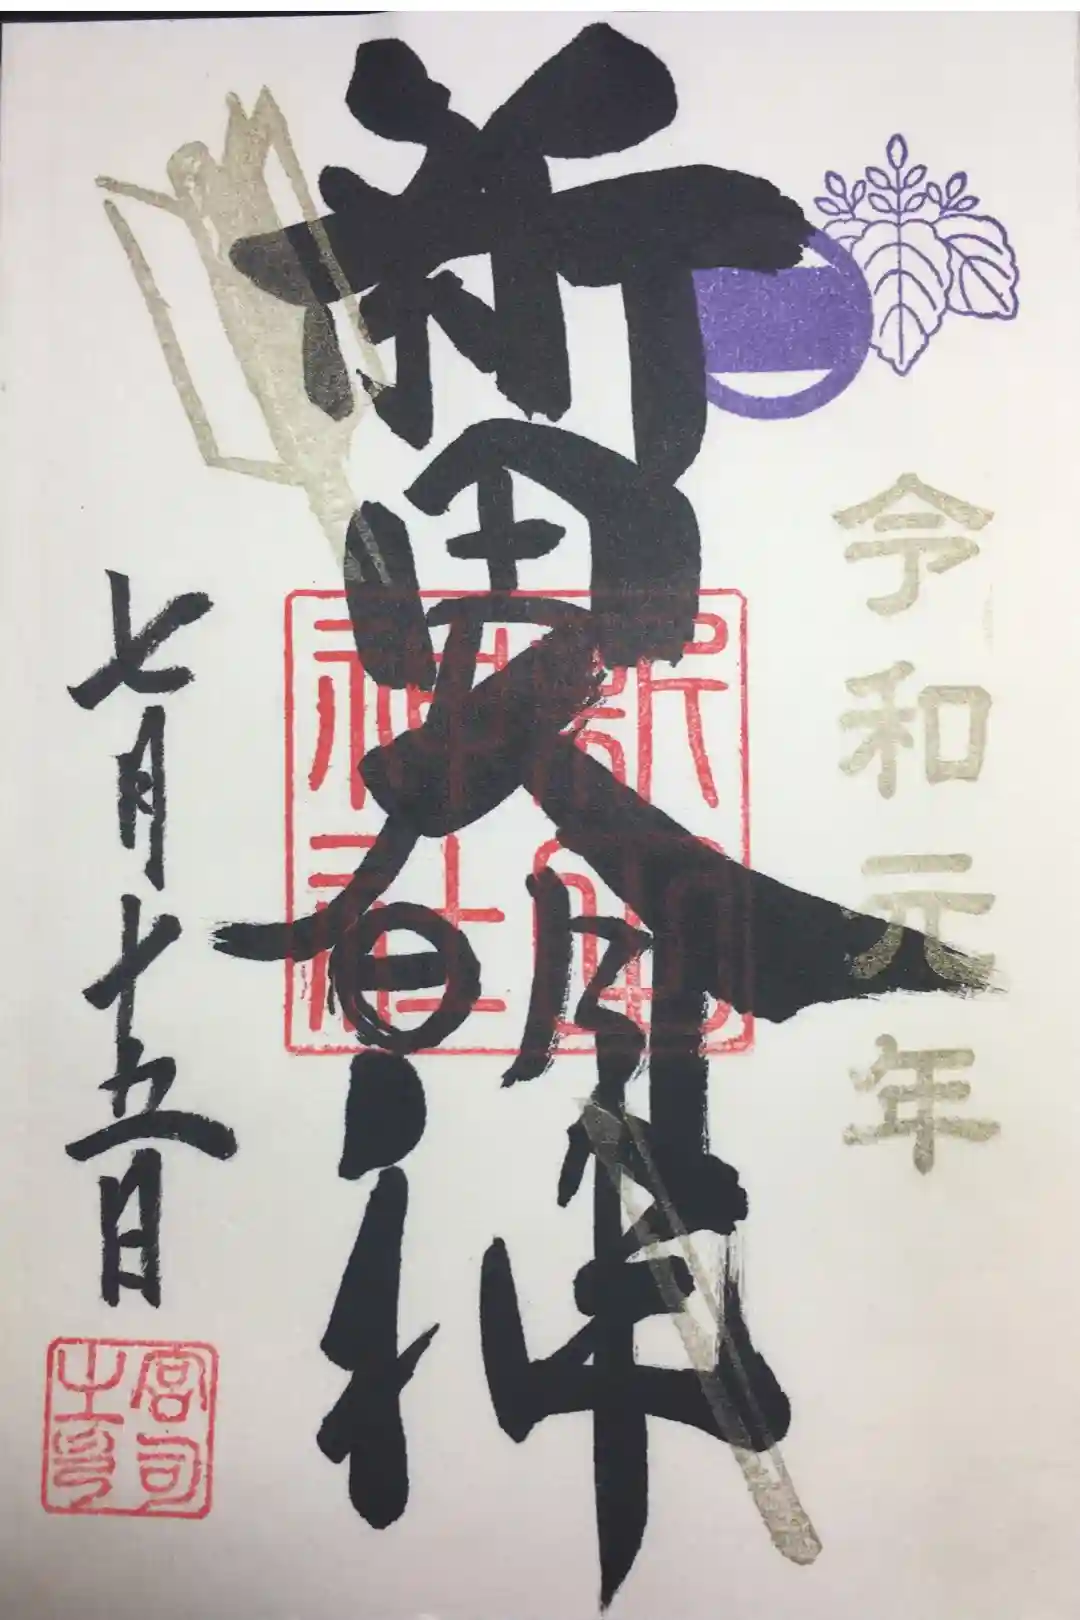 令和元年
新田大明神
新田神社
七月十五日
宮司之印